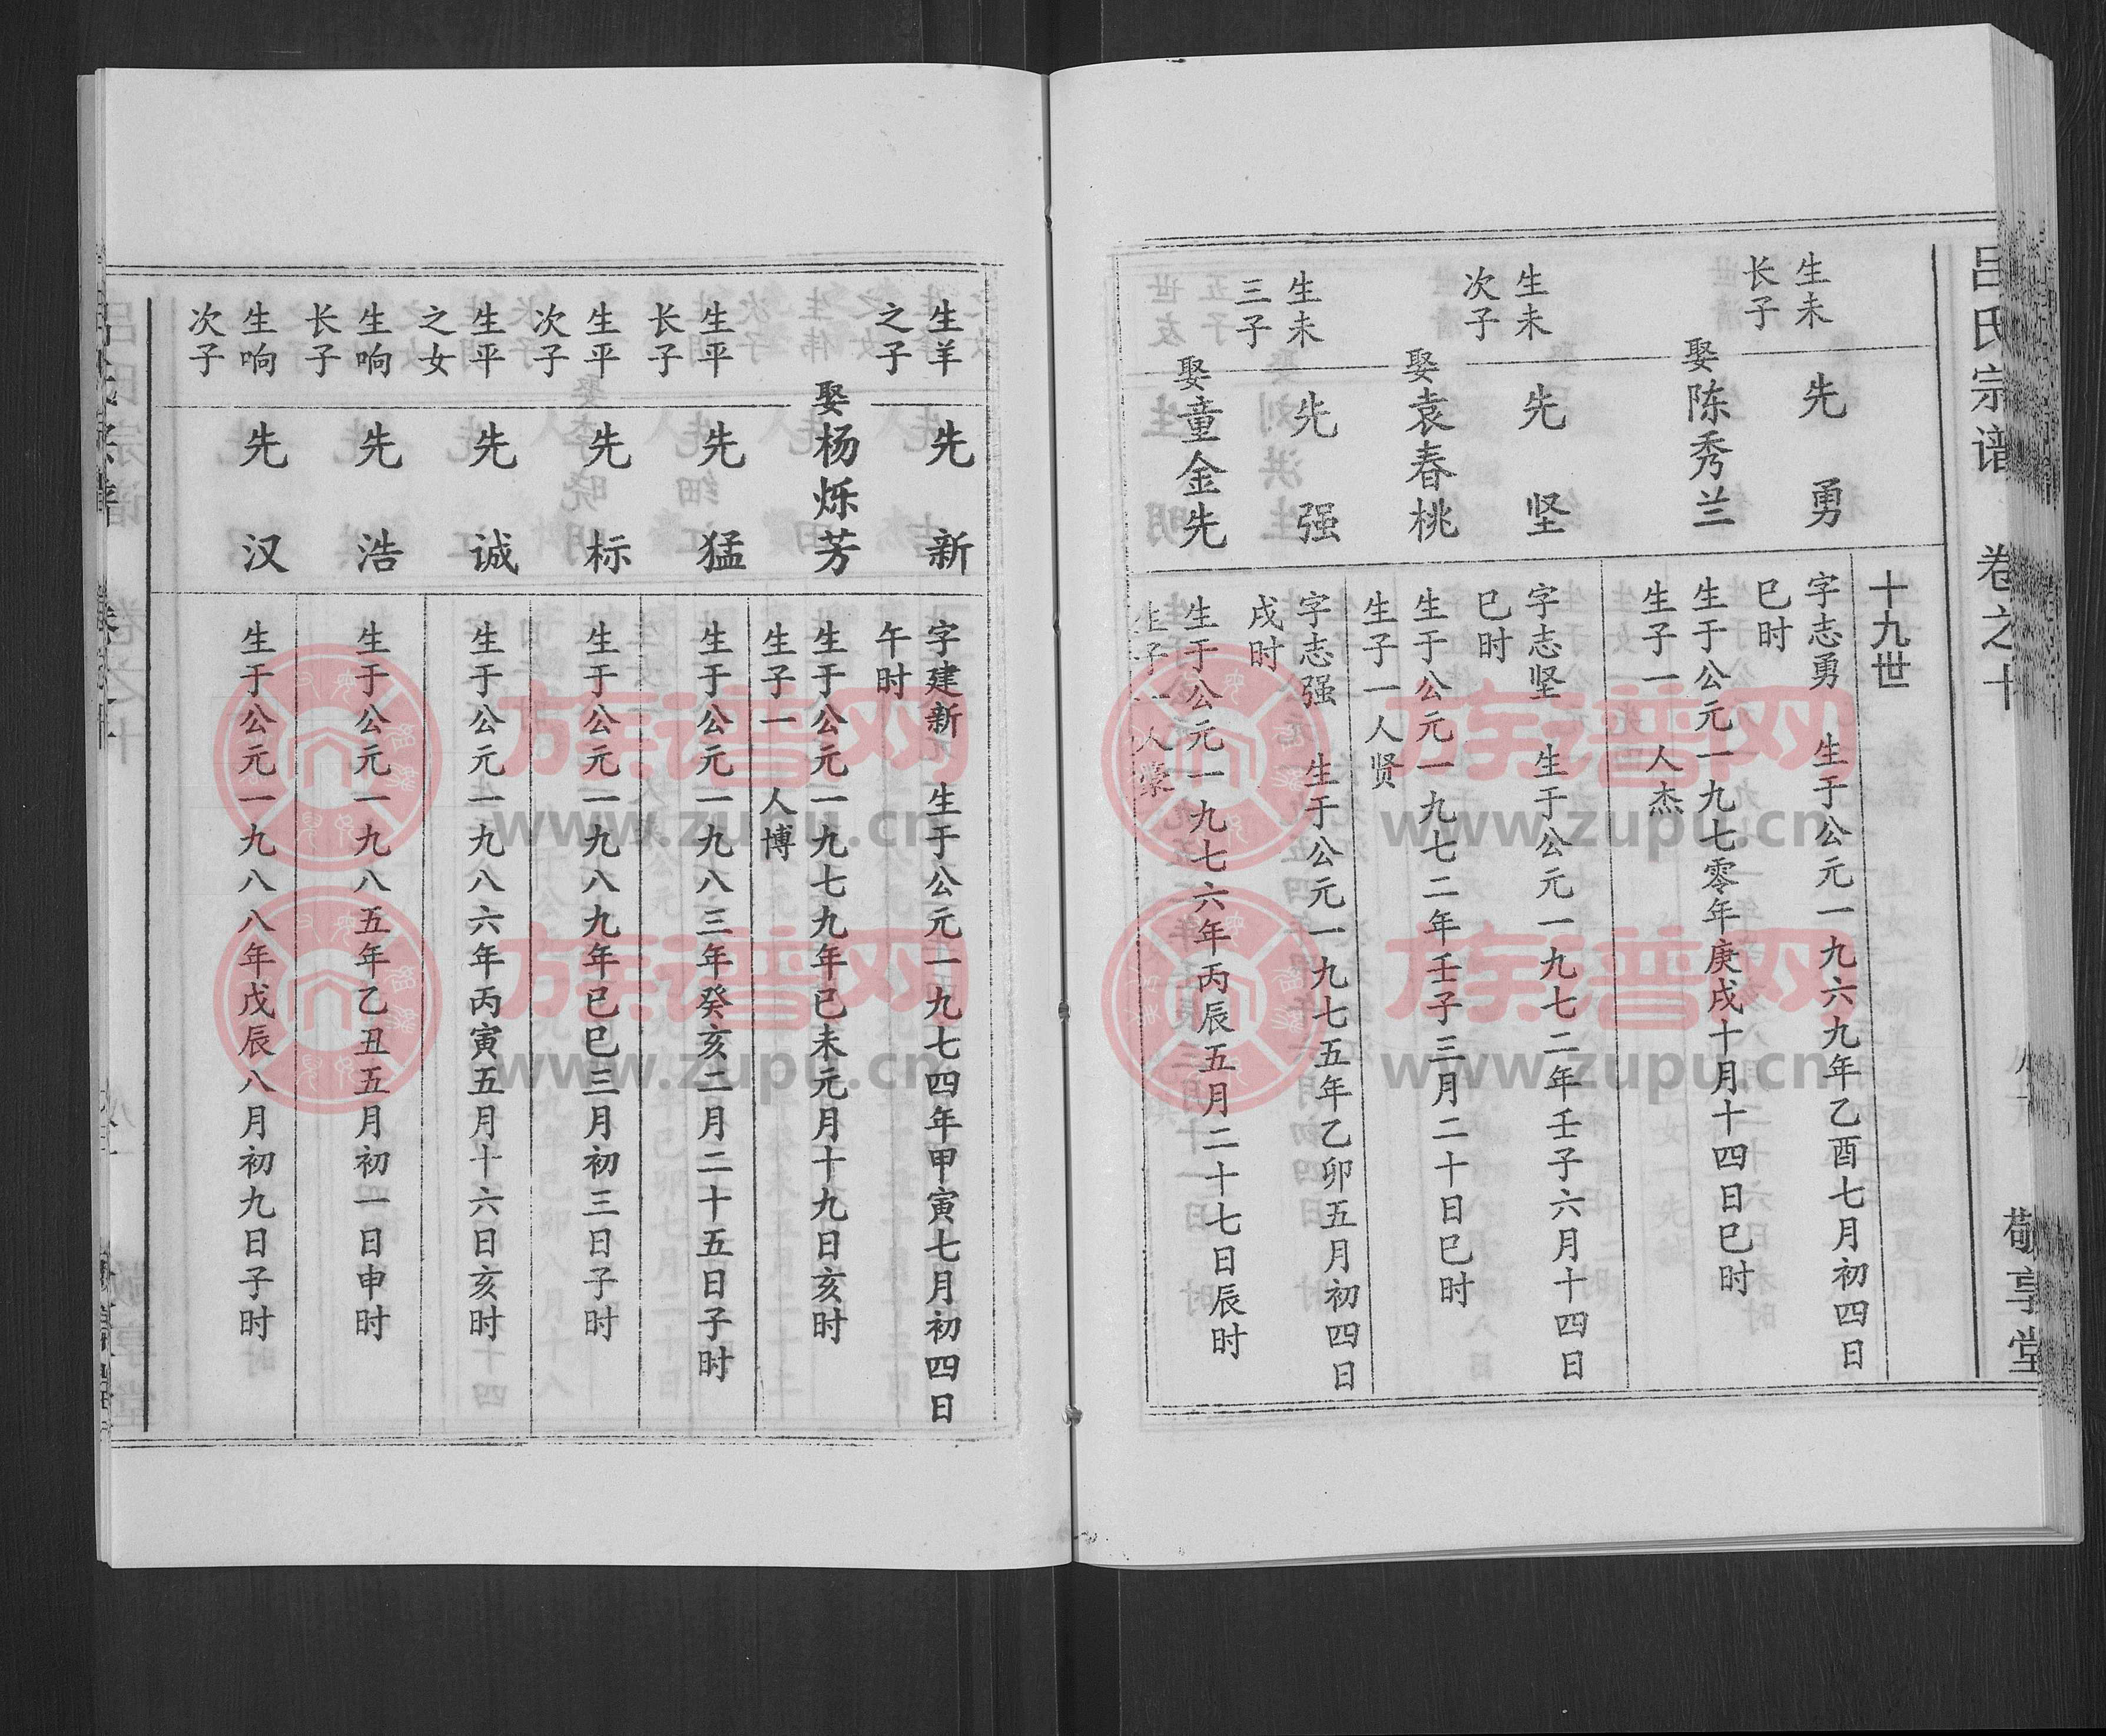 吕氏宗谱 卷之十 敬享堂
十九世
生未
长子
先勇
字志勇 生于公元一九六九年乙酉七月初四日
巳时
娶陈秀兰
生于公元一九七零年庚戌十月十四日巳时
生子一 人杰
生未
次子
先坚
字志坚 生于公元一九七二年壬子六月十四日
巳时
娶袁春桃
生于公元一九七二年壬子三月二十日巳时
生子一人贤
生未
三子
先强
字志强 生于公元一九七五年乙卯五月初四日
戌时
娶童金先
生于公元一九七六年丙辰五月二十七日辰时
生子一人豪
生羊
之子
先新
字建新 生于公元一九七四年甲寅七月初四日
午时
娶杨烁芳
生于公元一九七九年已未元月十九日亥时
生子一 人博
生平
长子
先猛
生于公元一九八三年癸亥二月二十五日子时
生平
次子
先标
生于公元一九八九年已巳三月初三日子时
生平
之女
先诚
生于公元一九八六年丙寅五月十六日亥时
生响
长子
先浩
生于公元一九八五年乙丑五月初一日申时
生响
次子
先汉
生于公元一九八八年戊辰八月初九日子时
族谱网
www.zupu.cn
族谱网
www.zupu.cn
族谱网
www.zupu.cn
族谱网
www.zupu.cn